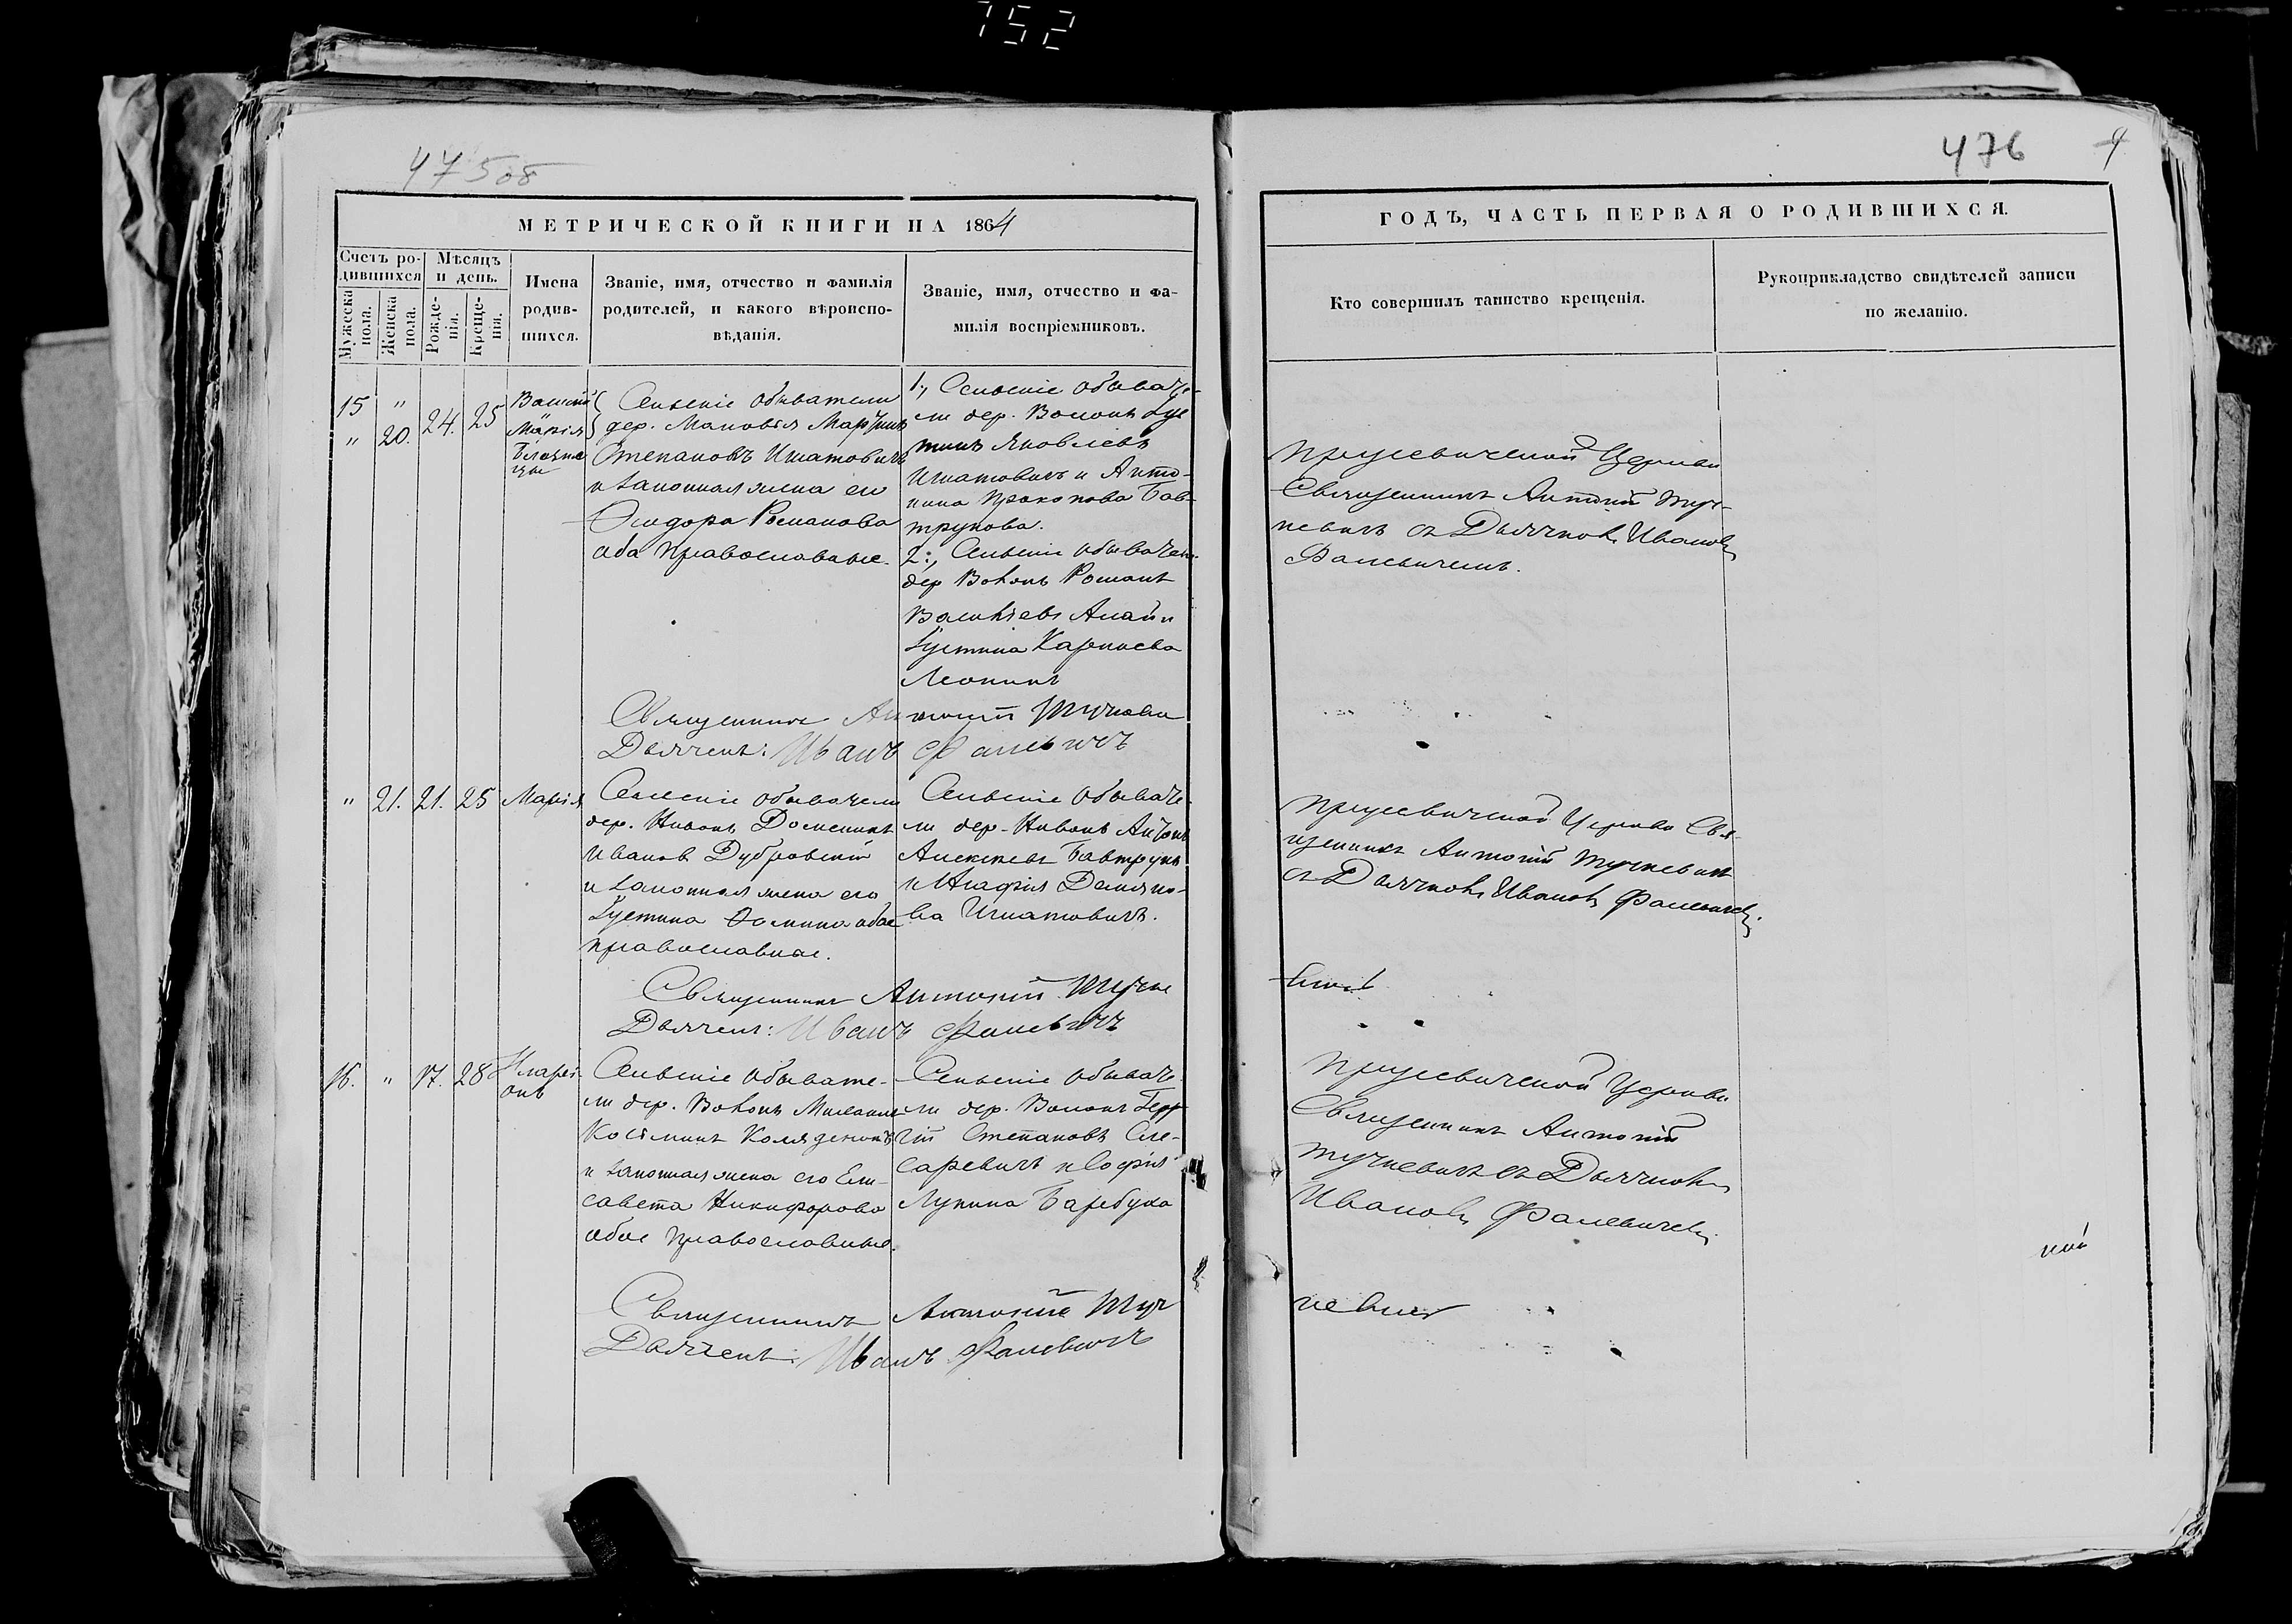 752
475 об
МЕТРИЧЕСКОЙ КНИГИ НА 1864
Счетъ ро-
дившихся
Мѣсяцъ
и день.
Мужеска
пола.
Женска
пола.
Рожде-
нія.
Креще-
нія.
Имена
родив-
шихся.
Званіе, имя, отчество и фамилія
родителей, и какого вѣроиспо-
вѣданія.
Званіе, имя, отчество и фа-
милія воспріемниковъ.
15 "
" 20. 24. 25
Василій
Марія
Близне
цы
Сельскіе обыватели
дер. Мартинъ
Степановъ Игнатовичъ
и законная жена его
Ѳеодора Романова
оба православные.
1., Сельскіе обывате-
ли дер. Волокъ Іус
тинъ Яковлевъ
Игнатовичъ и Анто-
нина Прокопова Бав-
трукова.
2:, Сельскіе обывател.
дер Волокъ Романъ
Васильевъ и
Іустина Карпиева
Священникъ Антоній Тучкеви
Дьячекъ: Иванъ Фалевичъ
" 21. 21. 25 Марія
Сельскіе обыватели
дер. Нивокъ Доменикъ
Ивановъ Дубровскій
и законная жена его
Іустина Ѳомина обое
православные.
Сельскіе обывате-
ли дер. Нивокъ Антонъ
Алексѣевъ Бавтрукъ
и Агафія Демьяно-
ва Игнатовичъ.
Священникъ Антоній Тучке
Дьячекъ: Иванъ Фалевичъ
16. " 17. 28 Иларі-
онъ
Сельскіе обывате-
ли дер. Волокъ Михаилъ
Косьминъ Коляденокъ
и законная жена его Ели-
савета Никифорова
обое православные.
Сельскіе обывате
ли дер. Волокъ Геор
гій Степановъ Сле-
саревичъ и Софія
Лукина Барбука
Священникъ Антоній Туч
Дьячекъ: Иванъ Фалевичъ
476
ГОДЪ, ЧАСТЬ ПЕРВАЯ О РОДИВШИХСЯ.
Кто совершилъ таинство крещенія.
Рукоприкладство свидѣтелей записи
по желанію.
Прусевичской Церкви
Священникъ Антоній Туч-
кевичъ съ Дьячкомъ Иваномъ
Фалевичемъ.
Прусевичской Церкви Свя-
щенникъ Антоній Тучкевичъ
съ Дьячкомъ Иваномъ Фалевичемъ.
вичъ
Прусевичской Церкви
Священникъ Антоній
Тучкевичъ съ Дьячкомъ
Иваномъ Фалевичемъ
кевичъ